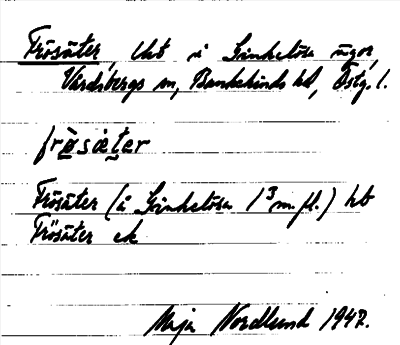 Frösäter, ckt i Grinkelösa ägor,
Vårdsbergs sn, Bankekinds hd, Östg. l.
frö̀sæ̀ter
Frösäter (i Grinkelösa 1³ m.fl.) hb
Frösäter ek
Maja Nordlund 1947.